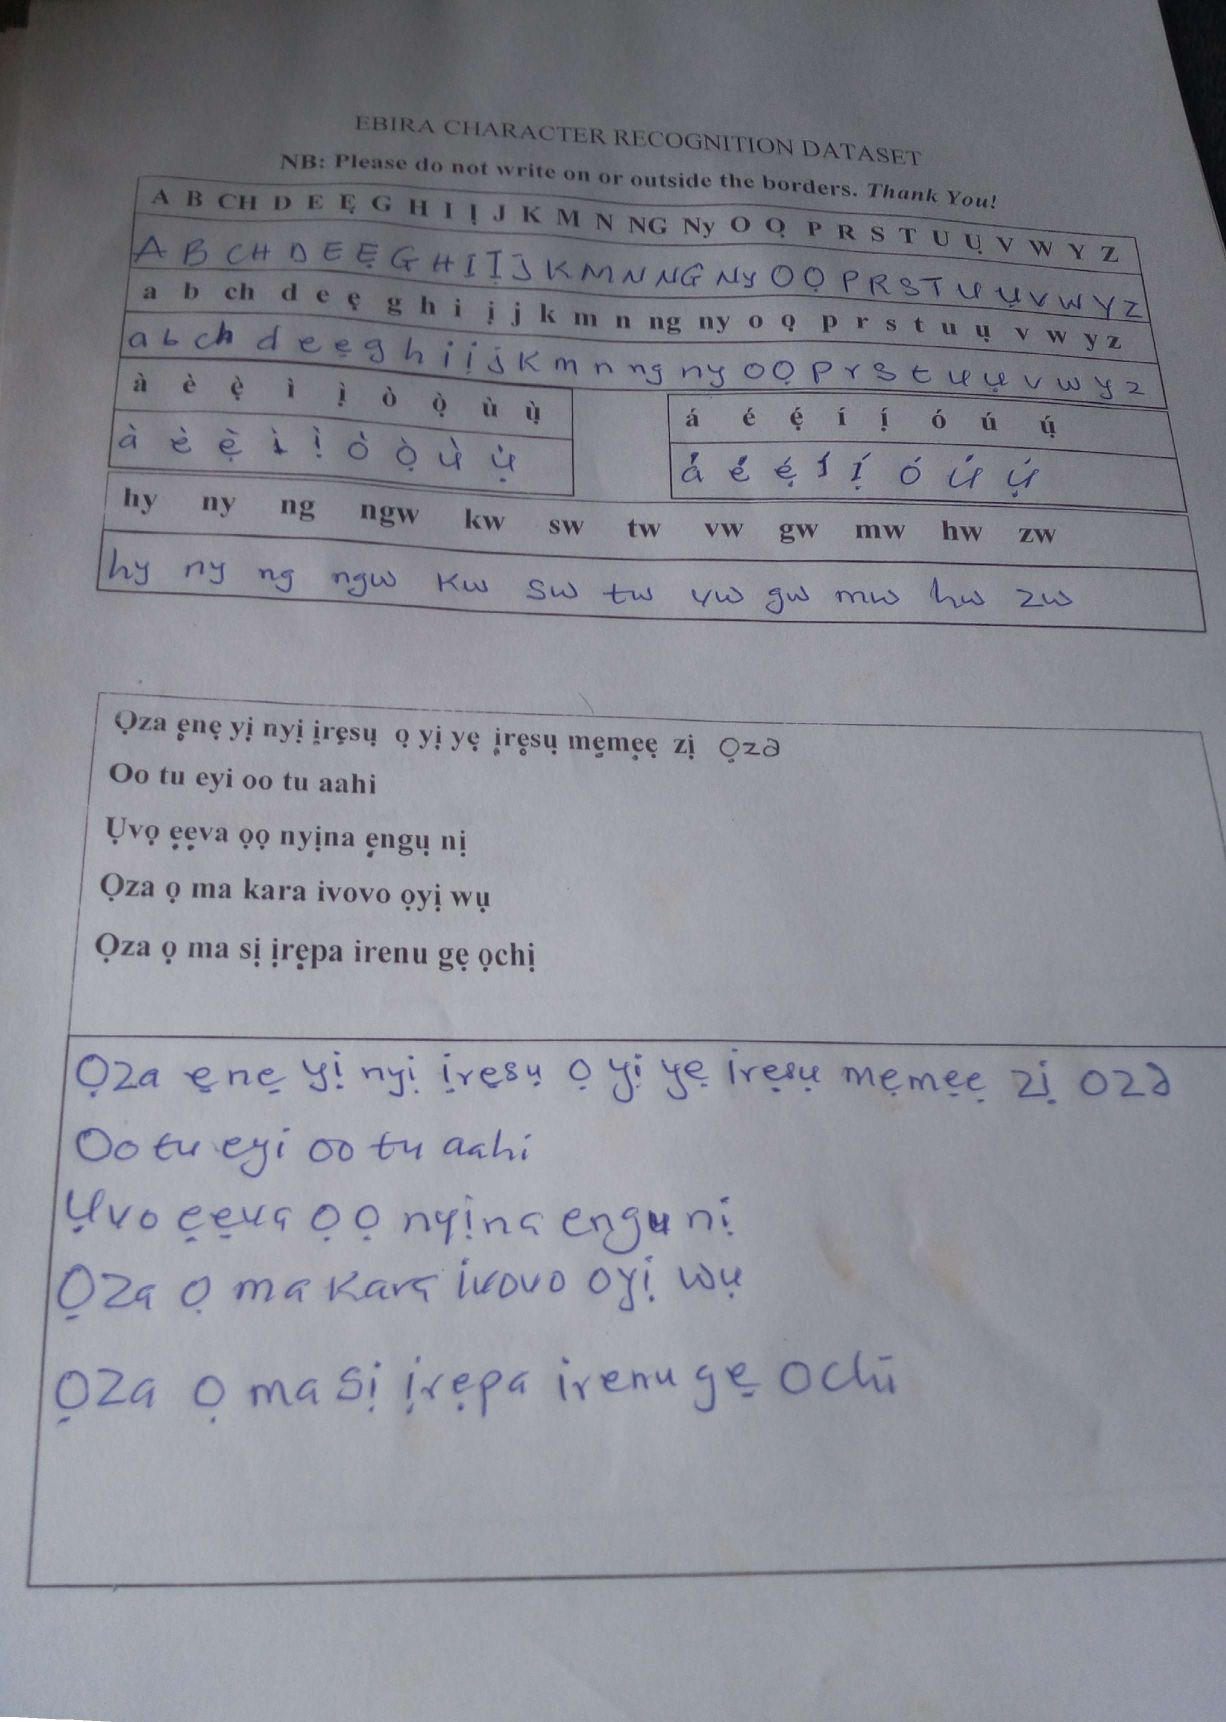 EBIRA CHARACTER RECOGNITION DATASET
NB: Please do not write on or outside the borders. Thank You!
A B CH D E Ẹ G H I Ị J K M N NG Ny O Ọ P R S T U Ụ V W Y Z
A B CH D E Ẹ G H I Ị J K M N NG Ny O Ọ P R S T U Ụ V W Y Z
a b ch d e ẹ g h i ị j k m n ng ny o ọ p r s t u ụ v w y z
a b ch d e ẹ g h i ị j k m n ng ny o ọ p r s t u ụ v w y z
à è ẹ̀ ì ị̀ ò ọ̀ ù ụ̀
á é ẹ́ í ị́ ó ú ụ́
à è ẹ̀ ì ị̀ ò ọ̀ ù ụ̀
á é ẹ́ í ị́ ó ú ụ́
hy ny ng ngw kw sw tw vw gw mw hw zw
hy ny ng ngw kw sw tw vw gw mw hw zw
Ọza ẹnẹ yị nyị ịrẹsụ ọ yị yẹ ịrẹsụ mẹmẹẹ zị Ọza
Oo tu eyi oo tu aahi
Ụvọ ẹẹva ọọ nyịna ẹngụ nị
Ọza ọ ma kara ivovo ọyị wụ
Ọza ọ ma sị ịrẹpa irenu gẹ ọchị
Ọza ẹnẹ yị nyị ịrẹsụ ọ yị yẹ irẹsụ mẹmẹẹ zị oza
Oo tu eyi oo tu aahi
Ụvo ẹẹva ọọ nyịna engu nị
Ọza ọ ma kara ivovo oyị wụ
Ọza ọ ma sị ịrẹpa irenu gẹ ochi